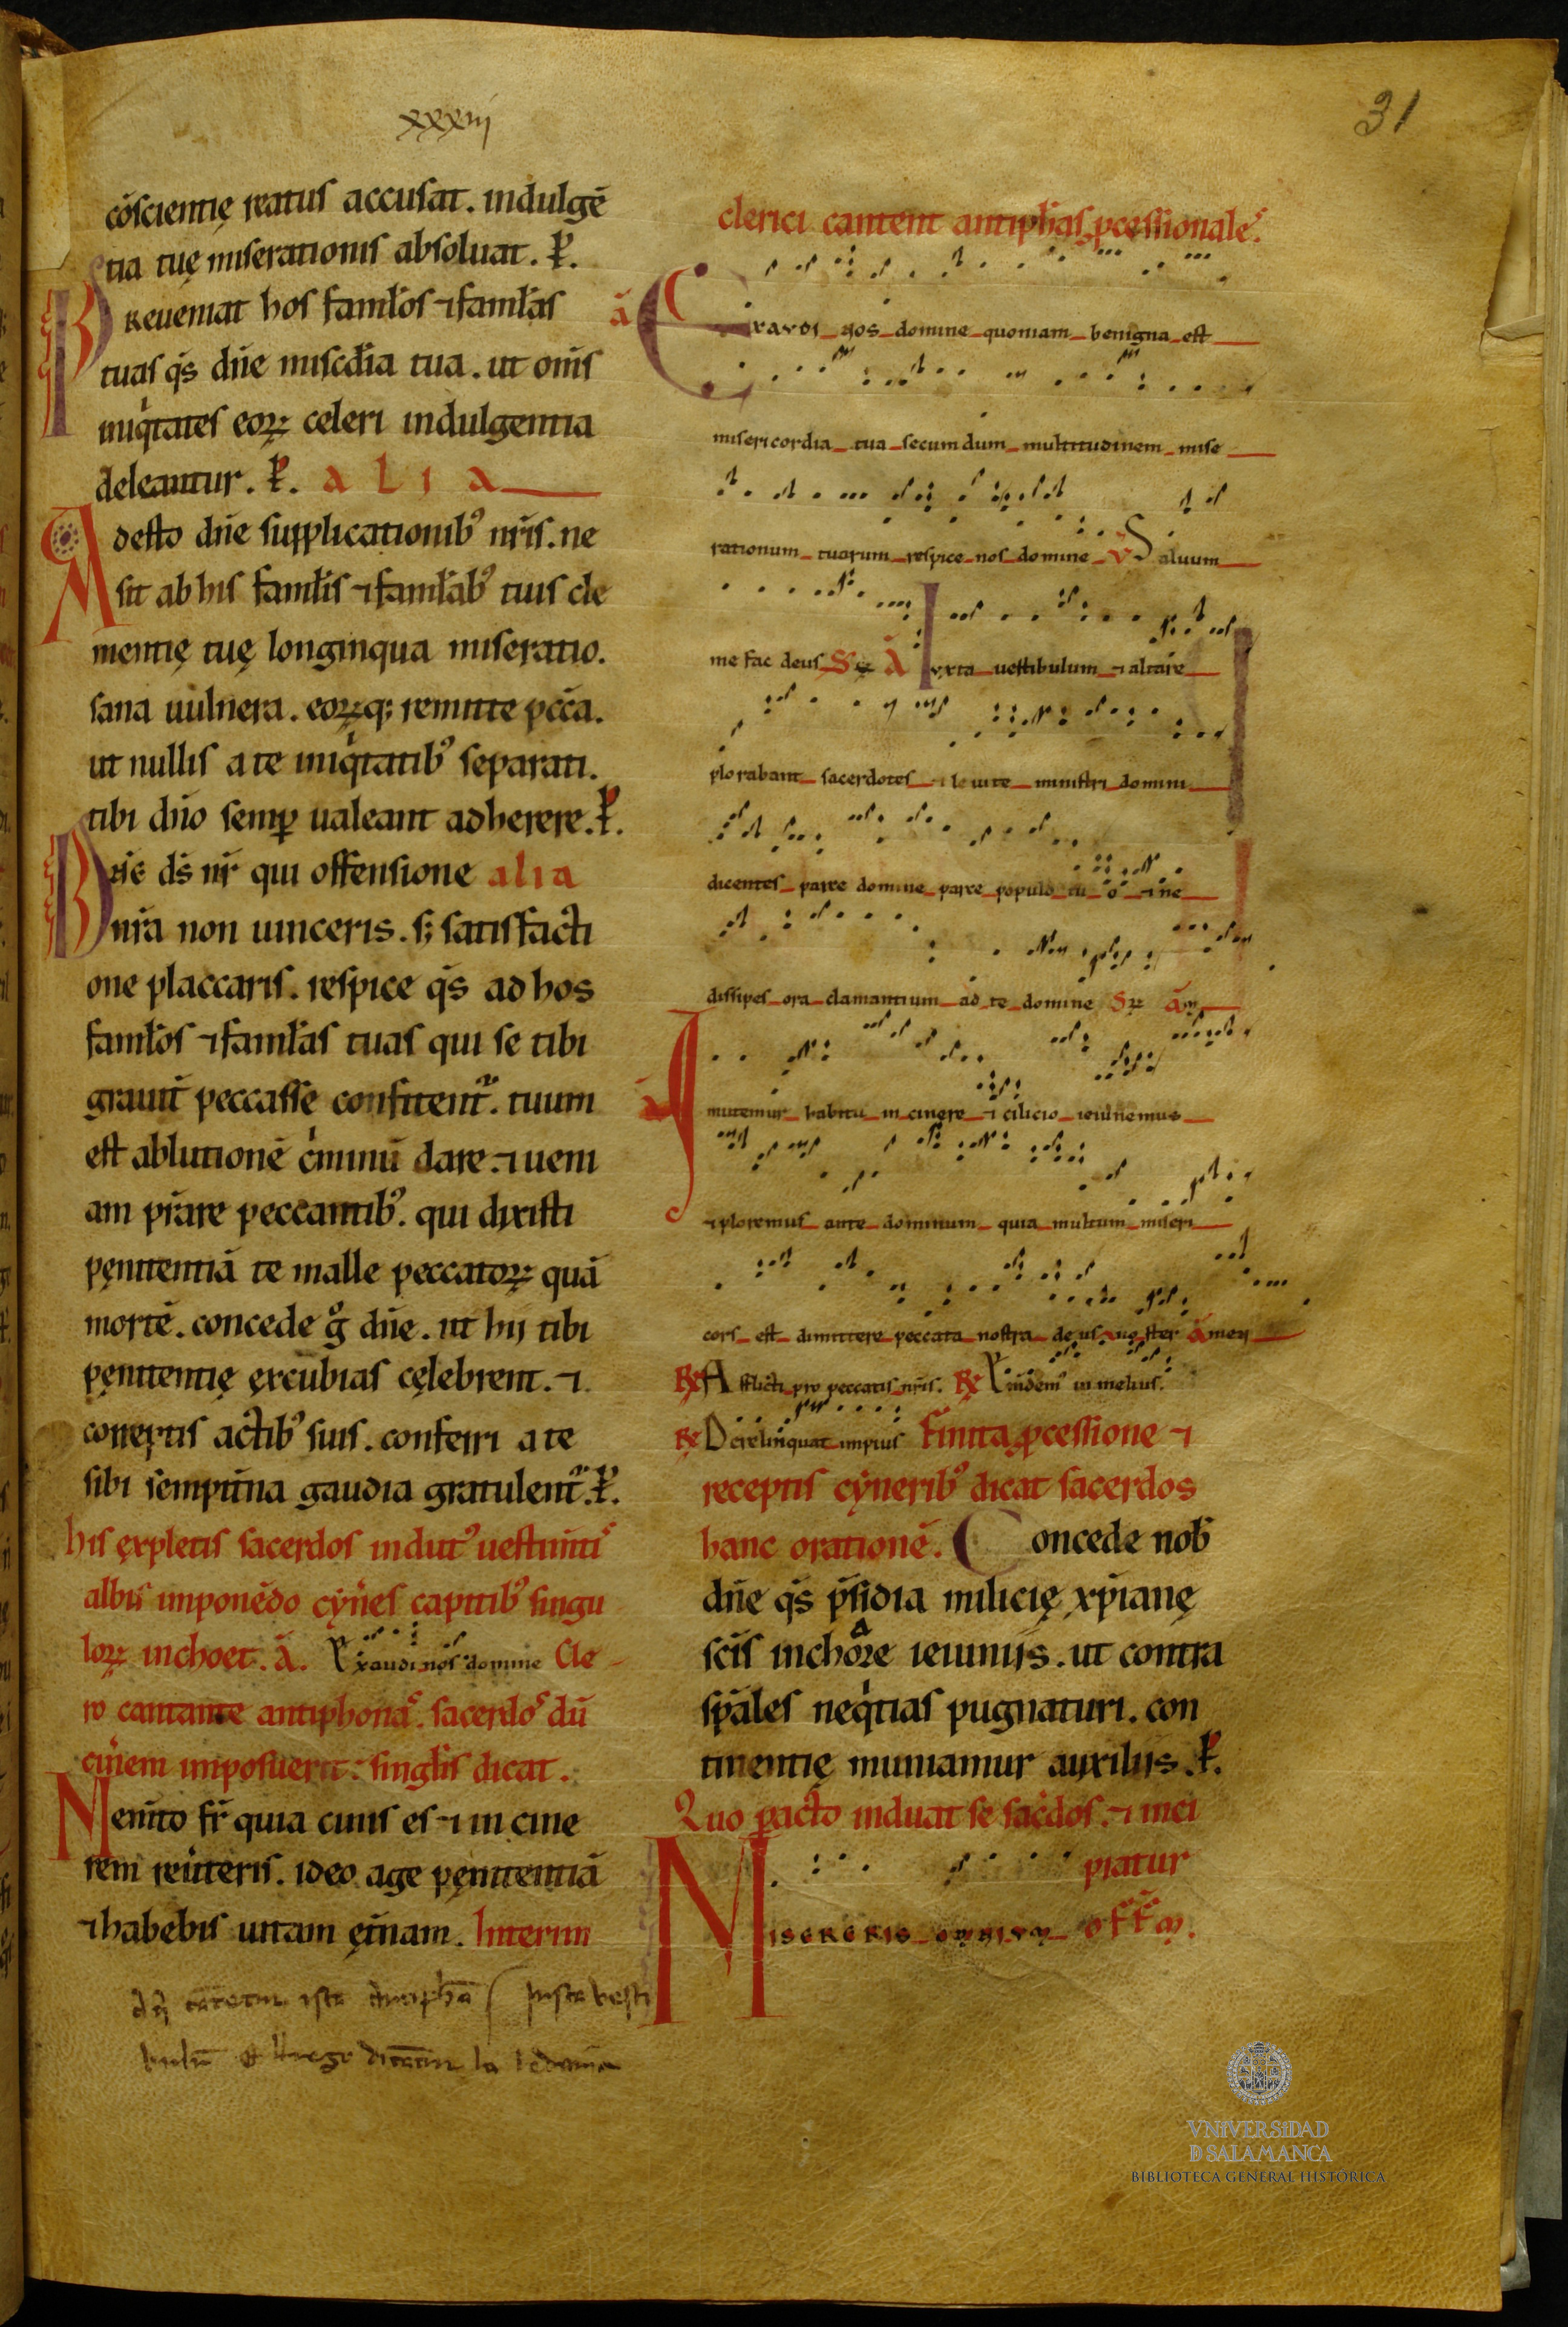 xxxiij
31
cōscientię reatus accusat. indulgē
tia tuę miserationis absoluat. P̄.
Preueniat hos famłos ⁊ famłas
tuas q̄s dn̄e misc̄dia tua. ut om̄s
iniq̇tates eoꝝ celeri indulgentia
deleantur. P̄. alia
Adesto dn̄e supplicationib᾽ nr̄is. ne
sit ab his famłis ⁊ famłab᾽ tuis cle
mentię tuę longinqua miseratio.
sana uulnera. eoꝝq; remitte pcc̄a.
ut nullis a te iniq̇tatib᾽ separati.
tibi dn̄o semꝑ ualeant adherere. P̄.
Dn̄e ds̄ nr̄ qui offensione alia
nr̄a non uinceris. s; satisfacti
one placcaris. respice q̄s ad hos
famłos ⁊ famłas tuas qui se tibi
grauit̄ peccasse confitent᾽. tuum
est ablutionē c̍minū dare. ⁊ ueni
am pr̄are peccantib᾽. qui dixisti
pęnitentiā te malle peccatoꝝ quā
mortē. concede g̊ dn̄e. ut hij tibi
pęnitentię excubias cęlebrent. ⁊
correptis actib᾽ suis. conferri a te
sibi sempit̄na gaudia gratulent᾽. P̄.
his expletis sacerdos indut᾽ uestim̄tis
albis imponēdo cyn̄es capitib᾽ singu
loꝝ inchoet. ā. Exaudi nos domine Cle-
ro cantante antiphonas. sacerdos dū
cin̄em imposuerit: singłis dicat.
Mem̄to fr̄ quia cinis es ⁊ in cine
rem reūteris. ideo age pęnitentiā
⁊ habebis uitam ęt̄nam. Interim
clerici cantent antiph̄as ꝓcessionales.
ā Exaudi nos domine quoniam benigna est
misericordia tua secumdum multitudinem mise
rationum tuarum respice nos domine V Saluum
me fac deus Sꝝ A Iuxta uestibulum ⁊ altare
plorabant sacerdotes ⁊ leuite ministri domini
dicentes parce domine parce populo tuo ⁊ ne
dissipes ora clamantium ad te domine Sꝝ am
Inmutemur habitu in cinere ⁊ cilicio ieiunemus
⁊ ploremus ante dominum quia multum miseri
cors est dimittere peccata nostra deus noster amen
℞ Afflicti pro peccatis nr̄is. ℞ Emdem᾽ in melius.
℞ Derelinquat impius Finita ꝓcessione ⁊
receptis cynerib᾽ dicat sacerdos
hanc orationē. Concede nob̄
dn̄e q̄s p̄sidia milicię xp̄ianę
sc̄is inchoare ieiuniis. ut contra
sp̄ales neq̇tias pugnaturi. con
tinentię muniamur auxiliis. P̄.
Quo pacto induat se sac̄dos. ⁊ inci
piatur
Misereris omnium off̄m.
VNIVERSIDAD
D SALAMANCA
BIBLIOTECA GENERAL HISTÓRICA